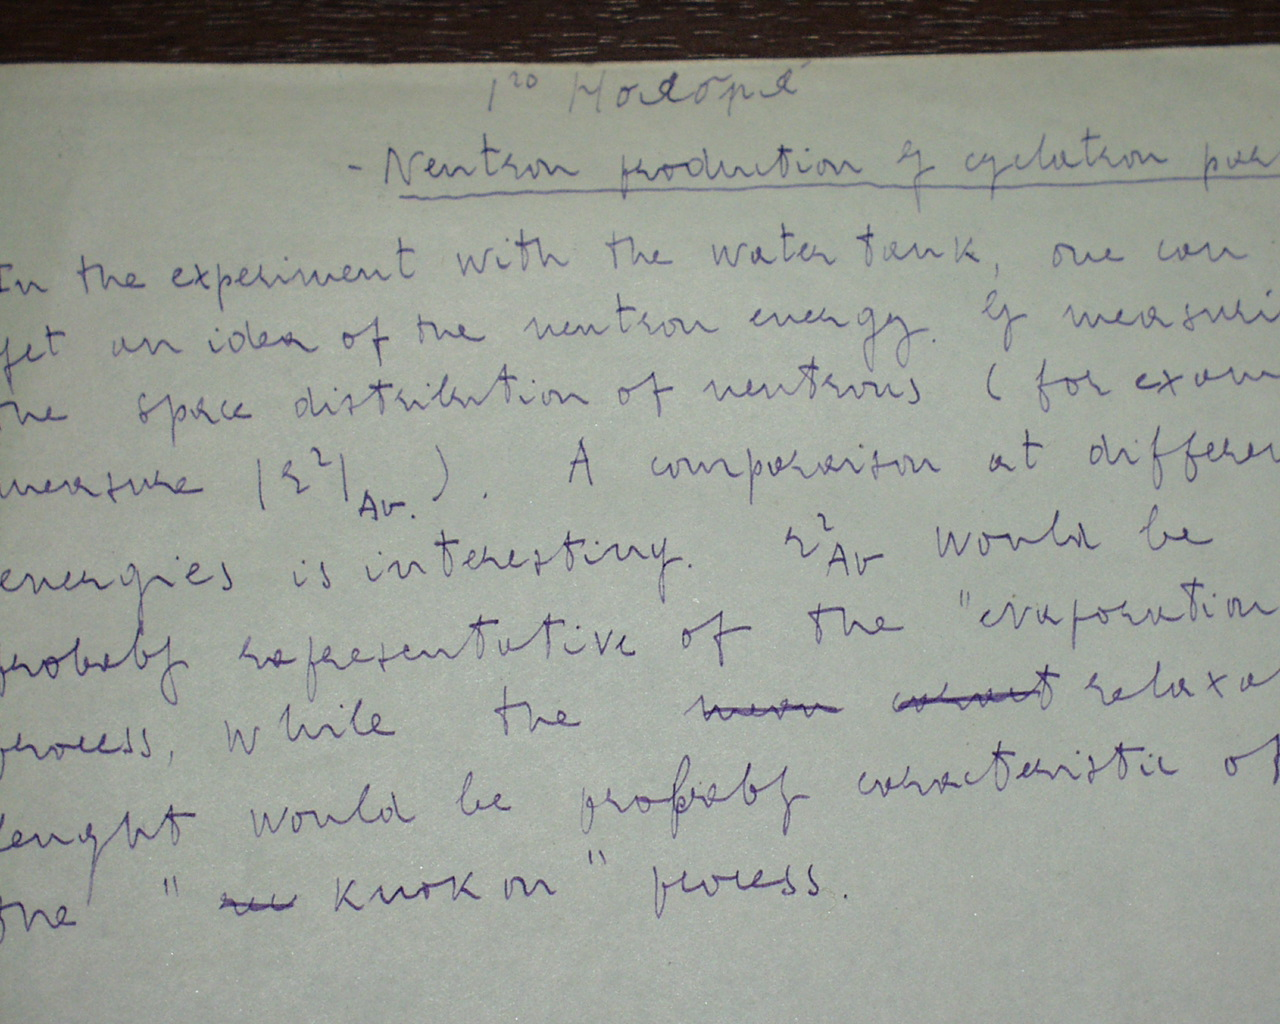 1го Ноября
- Neutron production by cyclotron par
In the experiment with the water tank, one can
get an idea of the neutron energy. By measuri
the space distribution of neutrons (for exam
measure |r²|Av.). A comparaison at differen
energies is interesting. r²Av would be
probably representative of the "evaporation
process, while the mean relaxa
lenght would be probably caracteristic of
the " knok on " process.